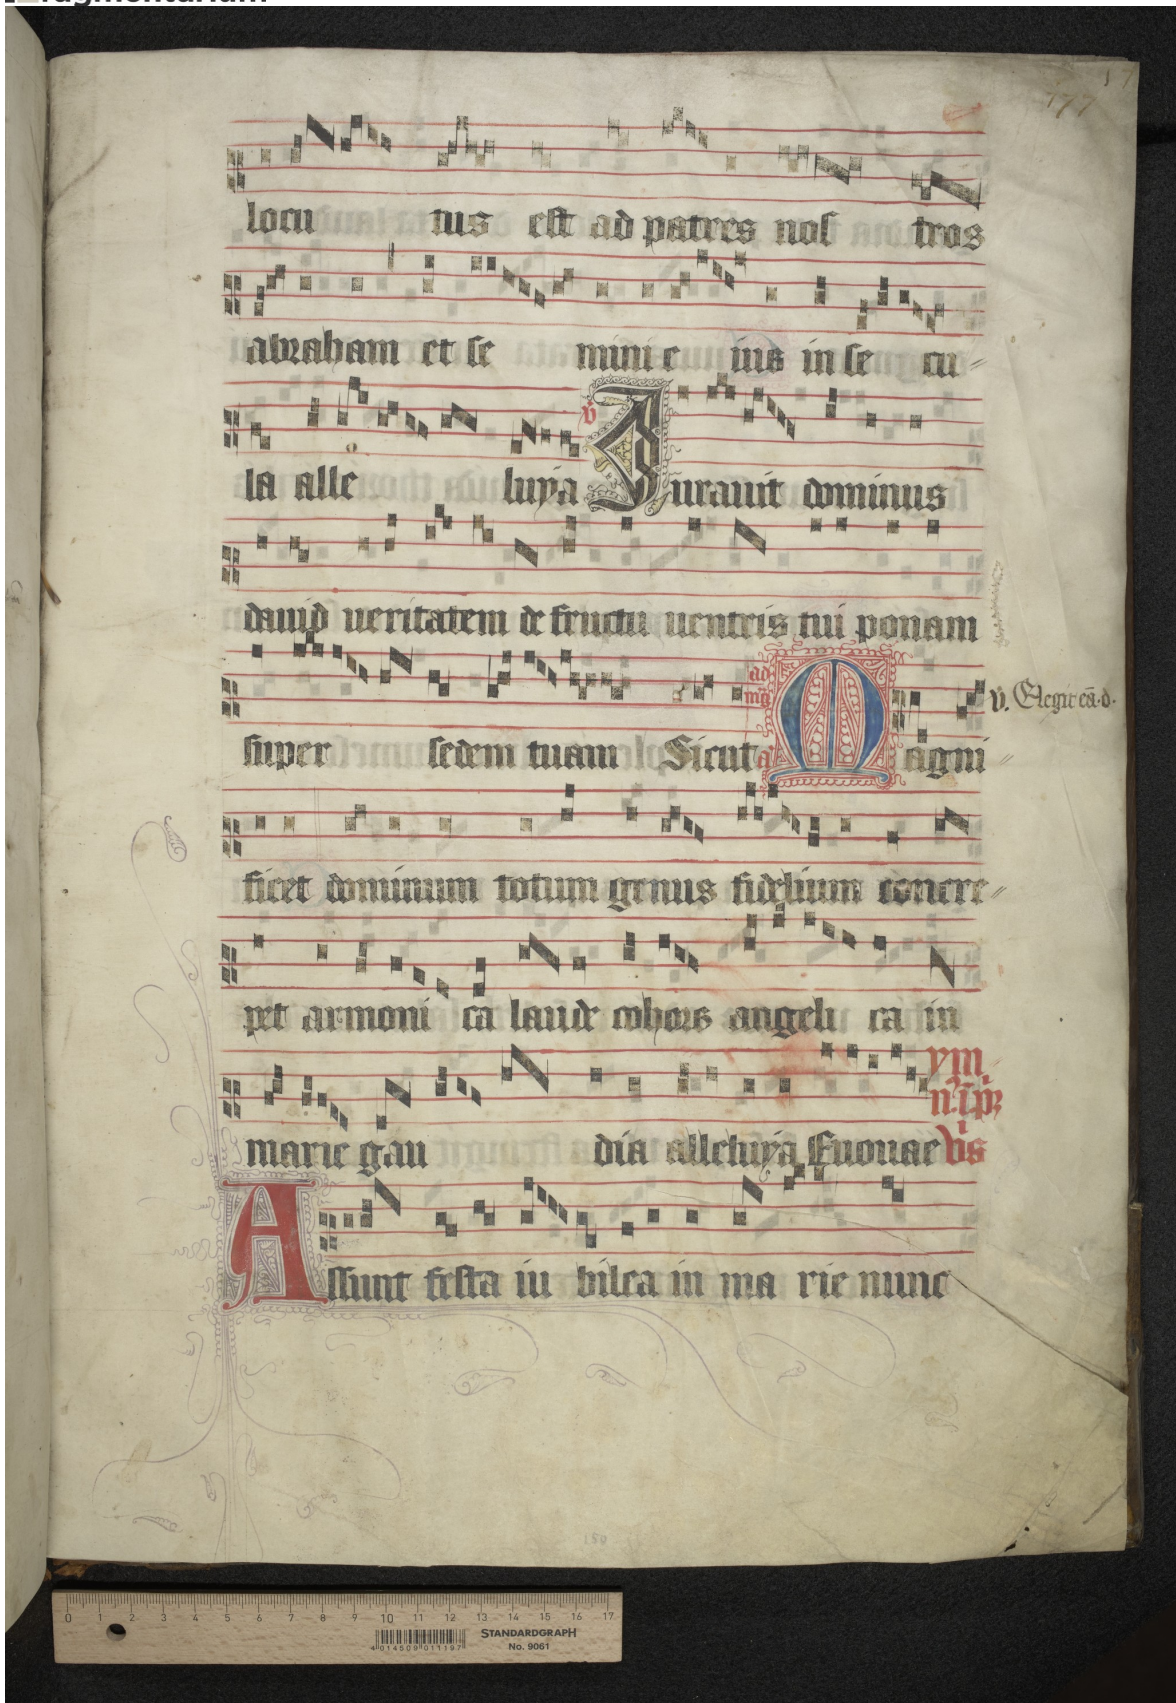 177
locu tus est ad patres nos tros
abraham et se mini e ius in se cu
la alle luya v Jurauit dominus
dauid ueritatem de fructu uentris tui ponam
super sedem tuam Sicut ad mg̅ a Magni
v̄. Elegit eā.d.
ficet dominum totum genus fidelium concre
pet armoni ca laude cohors angeli ca in
marie gau dia alleluya Euouae
ym
vis
Assunt festa iu bilea in ma rie nunc
150
0 1 2 3 4 5 6 7 8 9 10 11 12 13 14 15 16 17
STANDARDGRAPH
No. 9061
4 014509 011197